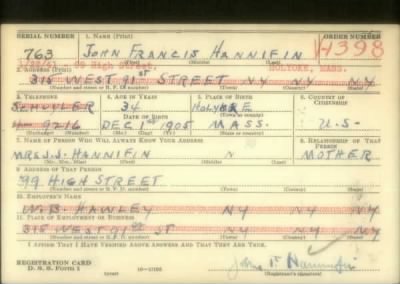 SERIAL NUMBER 1. NAME (Print) ORDER NUMBER
763 JOHN FRANCIS HANNIFIN 11398
(First) (Middle) (Last)
99 High Street, HOLYOKE, MASS.
2. ADDRESS (Print)
315 WEST 91ST STREET NY NY NY
(Number and street or R. F. D. number) (Town) (County) (State)
3. TELEPHONE 4. AGE IN YEARS 5. PLACE OF BIRTH 6. COUNTRY OF CITIZENSHIP
SCHUYLER 34 HOLYOKE
DATE OF BIRTH (Town or county)
4-9216 DEC 1ST 1905 MASS. U.S.
(Mo.) (Day) (Yr.) (State or country)
7. NAME OF PERSON WHO WILL ALWAYS KNOW YOUR ADDRESS 8. RELATIONSHIP OF THAT PERSON
MRS J. J. HANNIFIN MOTHER
(Mr., Mrs., Miss) (First) (Middle) (Last)
9. ADDRESS OF THAT PERSON
99 HIGH STREET
(Number and street or R. F. D. number) (Town) (County) (State)
10. EMPLOYER'S NAME
W. B. HAWLEY NY NY
11. PLACE OF EMPLOYMENT OR BUSINESS
315 WEST 91ST ST NY NY NY
(Number and street or R. F. D. number) (Town) (County) (State)
I AFFIRM THAT I HAVE VERIFIED ABOVE ANSWERS AND THAT THEY ARE TRUE.
REGISTRATION CARD
D. S. S. FORM 1 John F. Hannifin
(Registrant's signature)